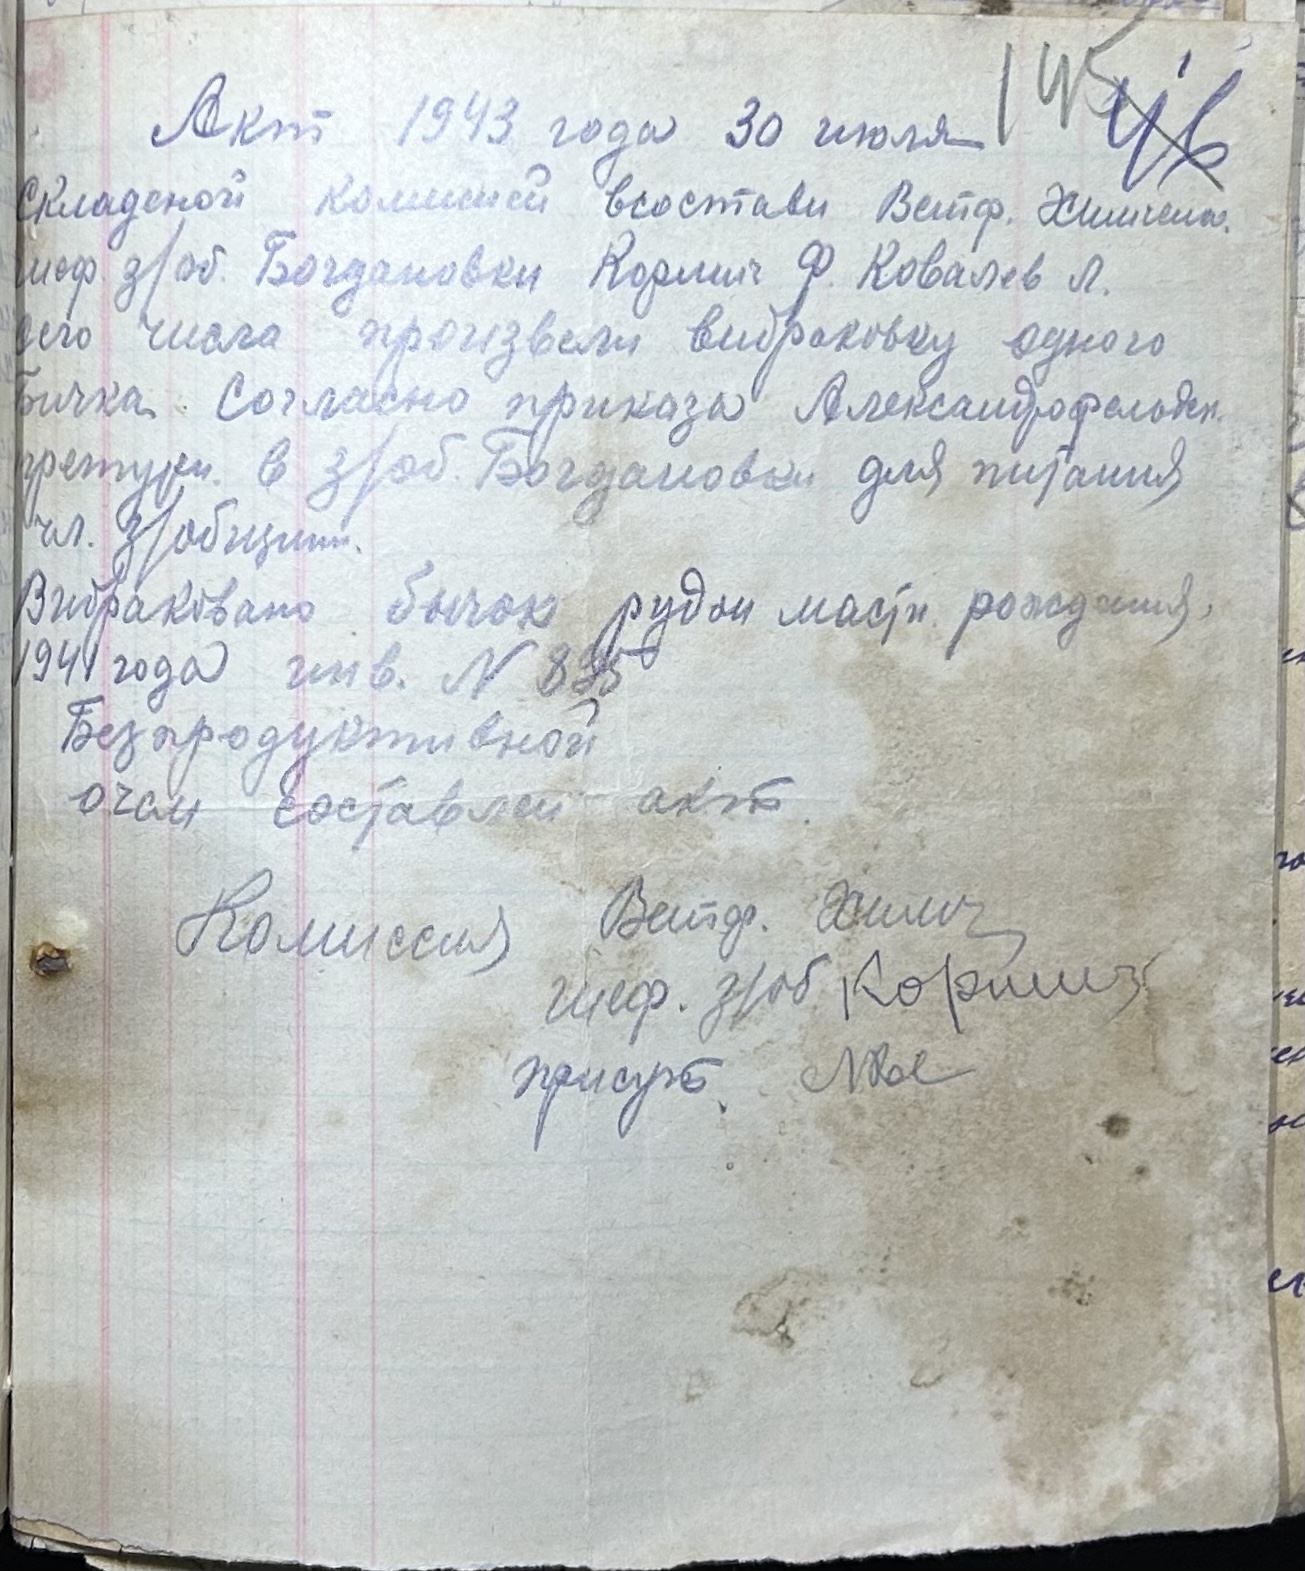 145 46
Акт 1943 года 30 июля
Складеной комисией всостави Ветф.
шеф. з/об. Богдановки Кормич Ф. Ковалев Л.
сего числа произвели вибраковку одного
Бичка. Согласно приказа Александрофельдск.
претури. в з/об. Богдановки для питания
чл. з/общини.
Вибраковано бычок рудой масти. рождения.
1941 года инв. N 835
Безпродуктивной
очем составлен акт.
Комиссия Ветф.
шеф. з/об Кормич
присут.